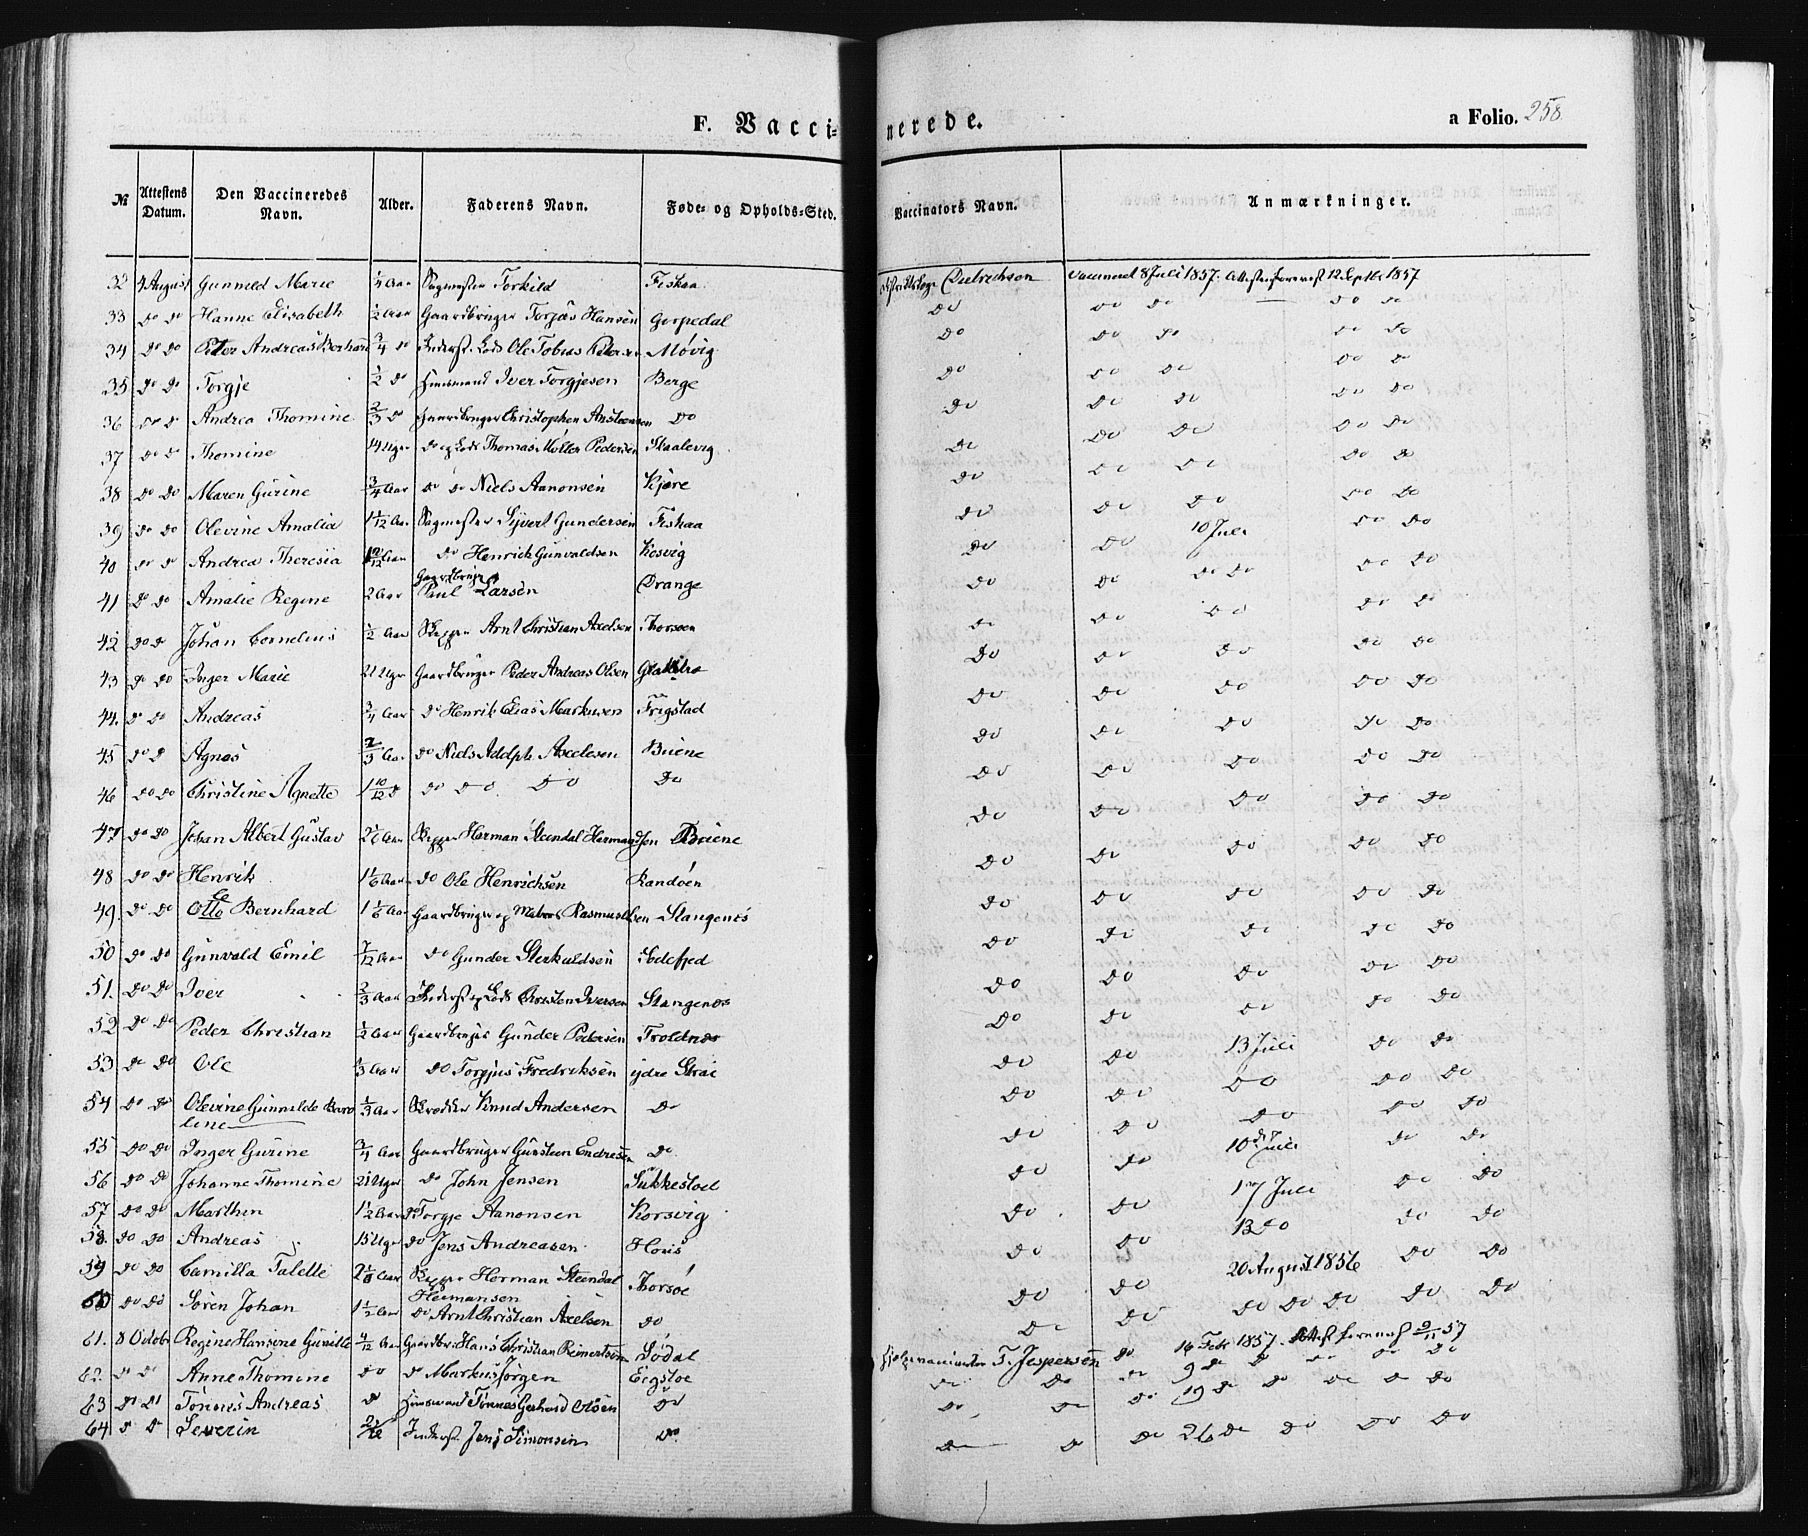 F. Vaccinerede. a Folio. 258
№ Attestens Datum. Den Vaccineredes Navn. Alder. Faderens Navn. Føde- og Opholds-Sted. Vaccinators Navn. Anmærkninger.
32 4 August Gunnild Marie 1/4 Aar Sagmester Torkild Fiskaa Dietrichson Vaccineret 8 Juli 1857. Attester forevist 12 Septbr 1857
33 do do Hanne Elisabeth 1/2 Aar Gaardbruger Torjus Hansen Gorpedal do do do do do
34 do do Peter Andreas Berhard 3/4 do Inderst. Lods Ole Tobias Petersen Møvig do do do do do
35 do do Torgje 1/2 do Huusmand Iver Torgjesen Berge do do do do do
36 do do Andrea Thomine 2/3 do Gaardbruger Christopher Anstensen do do do do do do
37 do do Thomine 14 Uger do og Lods Thomas Møller Pedersen Skaalevig do do do do do
38 do do Maren Gurine 3/4 Aar do do Niels Aanonsen Kjøre do do do do do
39 do do Olevine Amalia 1 1/12 Aar Sagmester Syvert Gundersen Fiskaa do do do do do
40 do do Andrea Theresia Aar do Henrick Gunvaldsen Kosvig do do 10 Juli do do
41 do do Amalie Regine 2 Aar Gaardbruger Paul Larsen Drange do do do do do do
42 do do Johan Cornelius 1/2 Aar Skipper Arnt Christian Axelsen Thorsøen do do do do do
43 do do Inger Marie 21 Uger Gaardbruger Peder Andreas Olsen do do do do do
44. do do Andreas 3/4 Aar do Henrik Elias Markusen Frigstad do do do do do
45 do do Agnes 2/3 Aar do Niels Adolph Axelesen Buene do do do do do
46 do do Christine Agnette 1 10/12 do do do do do do do do do do
47 do do Johan Albert Gustav 2 1/6 Aar Skipper Herman Steendal Hermandsen Buene do do do do do
48 do do Henrik 1 1/6 Aar do Ole Henrichsen Randøen do do do do do
49 do do Otto Bernhard 1 1/6 Aar Gaardbruger og Matros Rasmus Slangenes do do do do do
50 do do Gunvald Emil 7/12 Aar do Gunder Sterkuldsen Fodefjed do do do do do
51. do do Iver 2/3 Aar Inderst og Lods Thorsten Iversen Slangenes do do do do do
52 do do Peder Christian 1/2 Aar Gaardbruger Gunder Pedersen Troldnes do do do do do
53 do do Ole 2/3 Aar do Torgjus Fredriksen ydre Strai do do 13 Juli do do
54 do do Olevine Gunnilde Caroline 1/3 Aar Skrædder Knud Andersen do do do do do do
55 do do Inger Gurine 3/4 Aar Gaardbruger Gunsteen Endresen do do do do do do
56 do do Johanne Thomine 21 Uger do John Jensen Sukkestad do do 10de Juli do do
57 do do Marthin 1 1/2 Aar do Torgje Aanonsen Korsvig do do 17 Juli do do
58 do do Andreas 15 Uger do Jens Andreasen do do 13 do do do
59 do do Camilla Talette 2 1/6 Aar Skipper Herman Steendal Hermansen Thorsøe do do 20 August 1856 do do
60 do do Søren Johan 1 1/2 Aar do Arnt Christian Axelsen do do do do do do do do
61. 8 Octobr Regine Hansine Gunille 4/12 Aar Gaardbr. Hans Christian Reinertsen Sødal Hjelpevaccinatør T. Jespersen do 16 Febr 1857. Attest forevist 9/11 57
62. do do Anne Thomine do do Markus Jørgen Eegstøe do do do 9 do do do do do
63 do do Tønnes Andreas do Huusmand Tønnes Gerhard Olsen do do do do 19 do do do do do
64 do do Severin Inderst. Jens Simonsen do do do do 26 do do do do